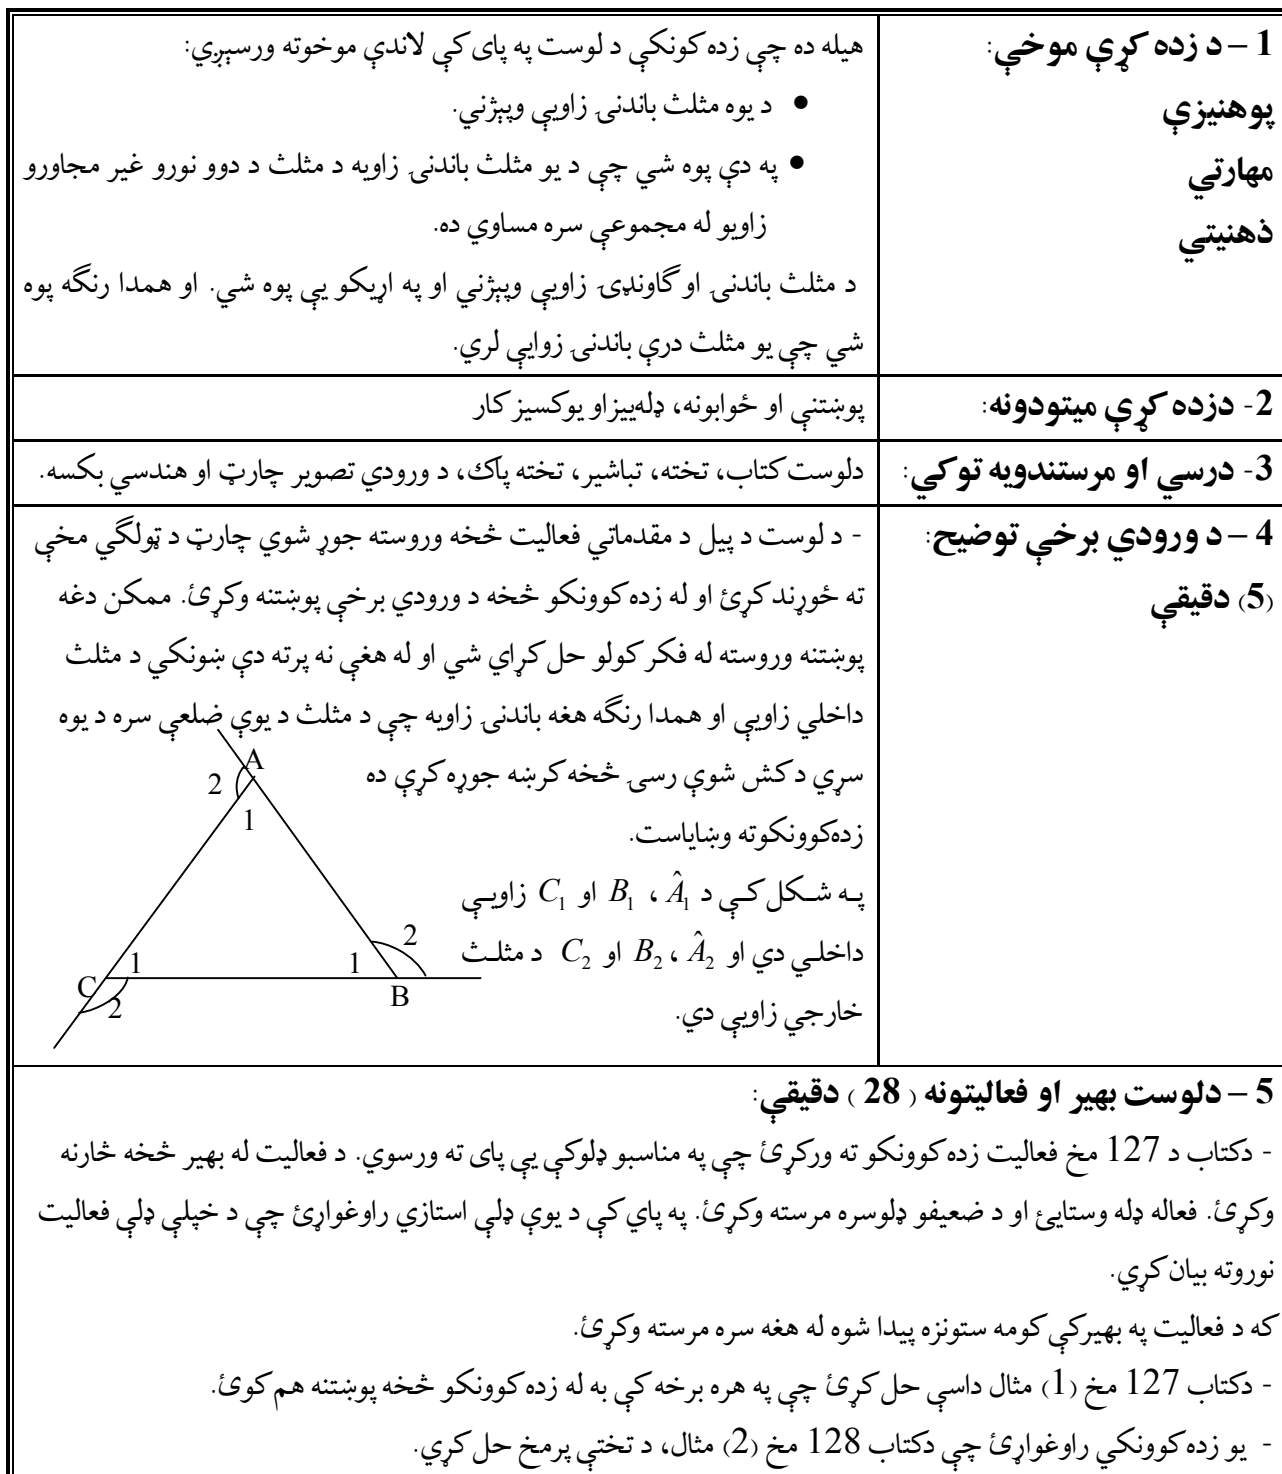 1 – د زده کړې موخې:
پوهنیزې
مهارتي
ذهنیتي
هیله ده چې زده کونکې د لوست په پای کې لاندې موخوته ورسېږي:
• د یوه مثلث باندنۍ زاویې وپېژني.
• په دې پوه شي چې د یو مثلث باندنۍ زاویه د مثلث د دوو نورو غیر مجاورو
زاویو له مجموعې سره مساوي ده.
د مثلث باندنۍ او ګاونډۍ زاویې وپېژني او په اړیکو یې پوه شي. او همدا رنګه پوه
شي چې یو مثلث درې باندنۍ زوایې لري.
2- دزده کړې میتودونه:
پوښتنې او ځوابونه، ډلهییزاو یوکسیز کار
3- درسي او مرستندویه توکي:
دلوست کتاب، تخته، تباشیر، تخته پاک، د ورودي تصویر چارټ او هندسي بکسه.
4 – د ورودي برخې توضیح:
(5) دقیقې
- د لوست د پیل د مقدماتي فعالیت څخه وروسته جوړ شوي چارټ د ټولګي مخې
ته ځوړند کړئ او له زده کوونکو څخه د ورودي برخې پوښتنه وکړئ. ممکن دغه
پوښتنه وروسته له فکر کولو حل کړای شي او له هغې نه پرته دې ښونکي د مثلث
داخلي زاویې او همدا رنګه هغه باندنۍ زاویه چې د مثلث د یوې ضلعې سره د یوه
سړي د کش شوې رسۍ څخه کرښه جوړه کړې ده
زدهکوونکوته وښایاست.
په شکل کې د Â₁ ، B₁ او C₁ زاویې
داخلي دي او Â₂ ، B₂ او C₂ د مثلث
خارجي زاویې دي.
A
2
1
2
1
1
C
B
2
5 – دلوست بهیر او فعالیتونه ( 28 ) دقیقې:
- دکتاب د 127 مخ فعالیت زده کوونکو ته ورکړئ چې په مناسبو ډلوکې یې پای ته ورسوي. د فعالیت له بهیر څخه څارنه
وکړئ. فعاله ډله وستایئ او د ضعیفو ډلوسره مرسته وکړئ. په پاي کې د یوې ډلې استازي راوغواړئ چې د خپلې ډلې فعالیت
نوروته بیان کړي.
که د فعالیت په بهیرکې کومه ستونزه پیدا شوه له هغه سره مرسته وکړئ.
- دکتاب 127 مخ (1) مثال داسې حل کړئ چې په هره برخه کې به له زده کوونکو څخه پوښتنه هم کوئ.
- یو زده کوونکي راوغواړئ چې دکتاب 128 مخ (2) مثال، د تختې پرمخ حل کړي.